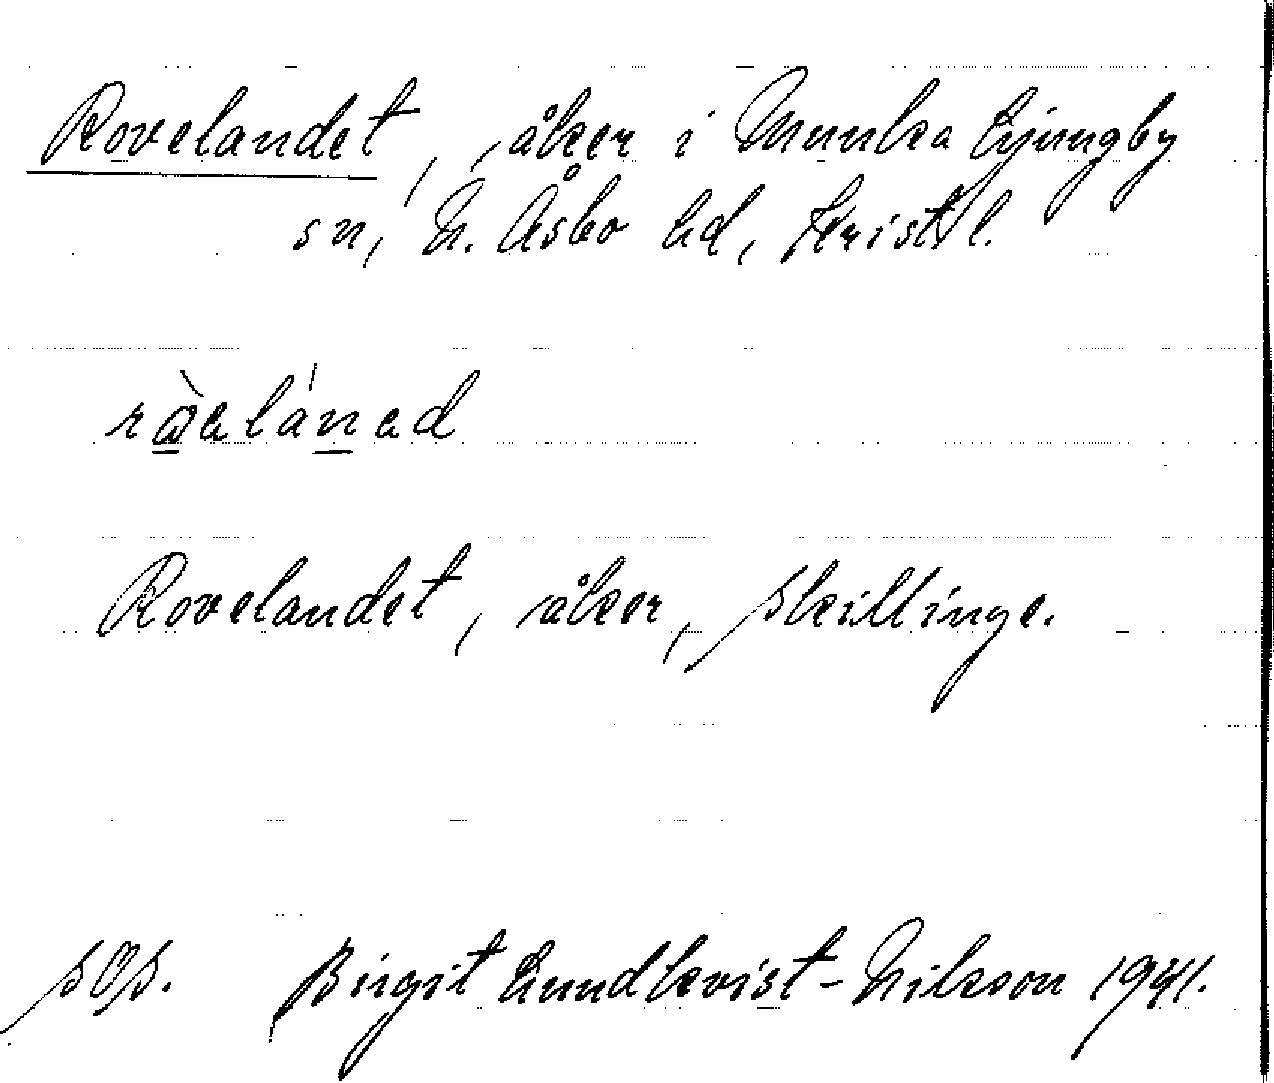 Rovelandet, åker i Munka Ljungby
sn, N. Åsbo hd, Krist. l.
Rovelandet, åker, Skillinge.
Birgit Lundkvist-Nilsson 1941.